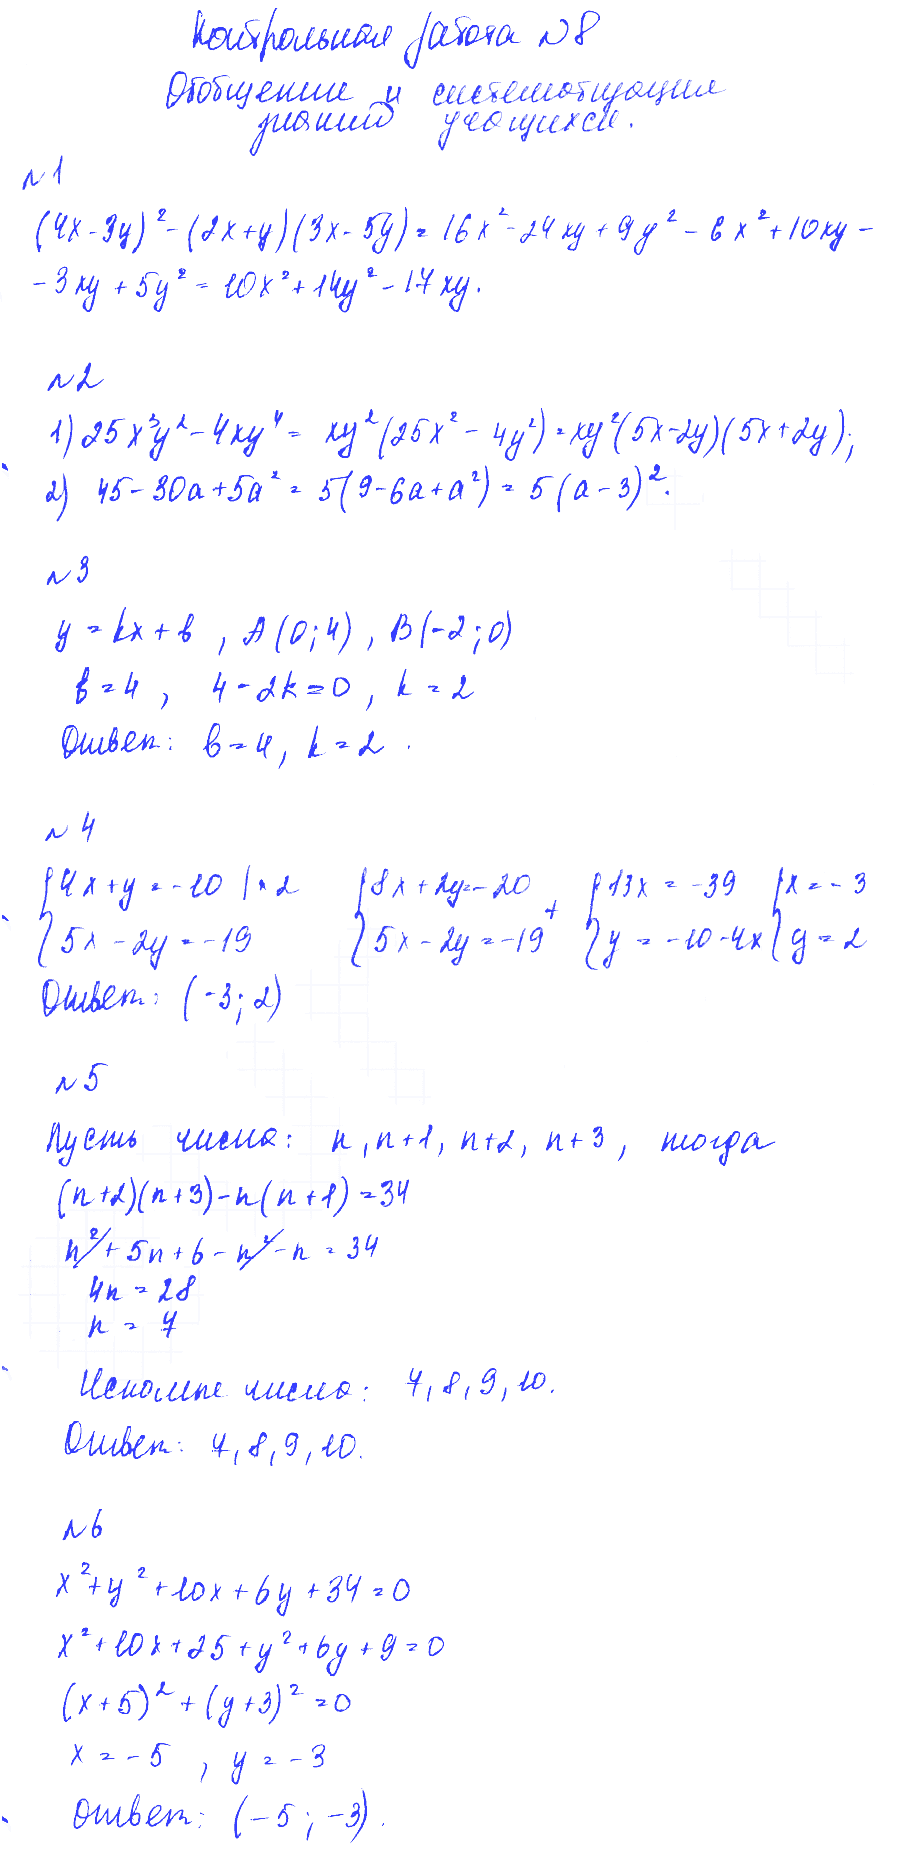 Контрольная работа №8
Обобщение и систематизация
знаний учащихся.
№1
(4x-3y)² - (2x+y)(3x-5y) = 16x² - 24xy + 9y² - 6x² + 10xy -
- 3xy + 5y² = 10x² + 14y² - 17xy.
№2
1) 25x³y² - 4xy⁴ = xy²(25x² - 4y²) = xy²(5x-2y)(5x+2y);
2) 45 - 30a + 5a² = 5(9 - 6a + a²) = 5(a-3)².
№3
y = kx + b, A(0;4), B(-2;0)
b = 4, 4 - 2k = 0, k = 2
Ответ: b = 4, k = 2.
№4
{4x + y = -10 |·2 {8x + 2y = -20 + {13x = -39 {x = -3
{5x - 2y = -19 {5x - 2y = -19 {y = -10 - 4x {y = 2
Ответ: (-3; 2)
№5
Пусть числа: n, n+1, n+2, n+3, тогда
(n+2)(n+3) - n(n+1) = 34
n² + 5n + 6 - n² - n = 34
4n = 28
n = 7
Искомые числа: 7, 8, 9, 10.
Ответ: 7, 8, 9, 10.
№6
x² + y² + 10x + 6y + 34 = 0
x² + 10x + 25 + y² + 6y + 9 = 0
(x+5)² + (y+3)² = 0
x = -5, y = -3
Ответ: (-5; -3).